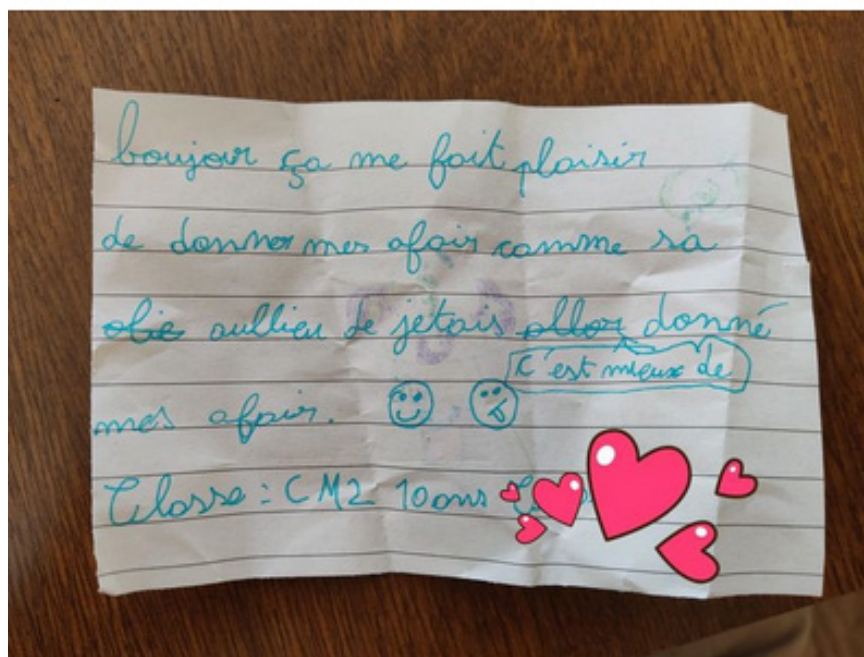 boujour ça me fait plaisir
de donner mes afair comme sa
aullieu de jetais donné
c'est mieux de
mes afair.
Classe : CM2 10 ans